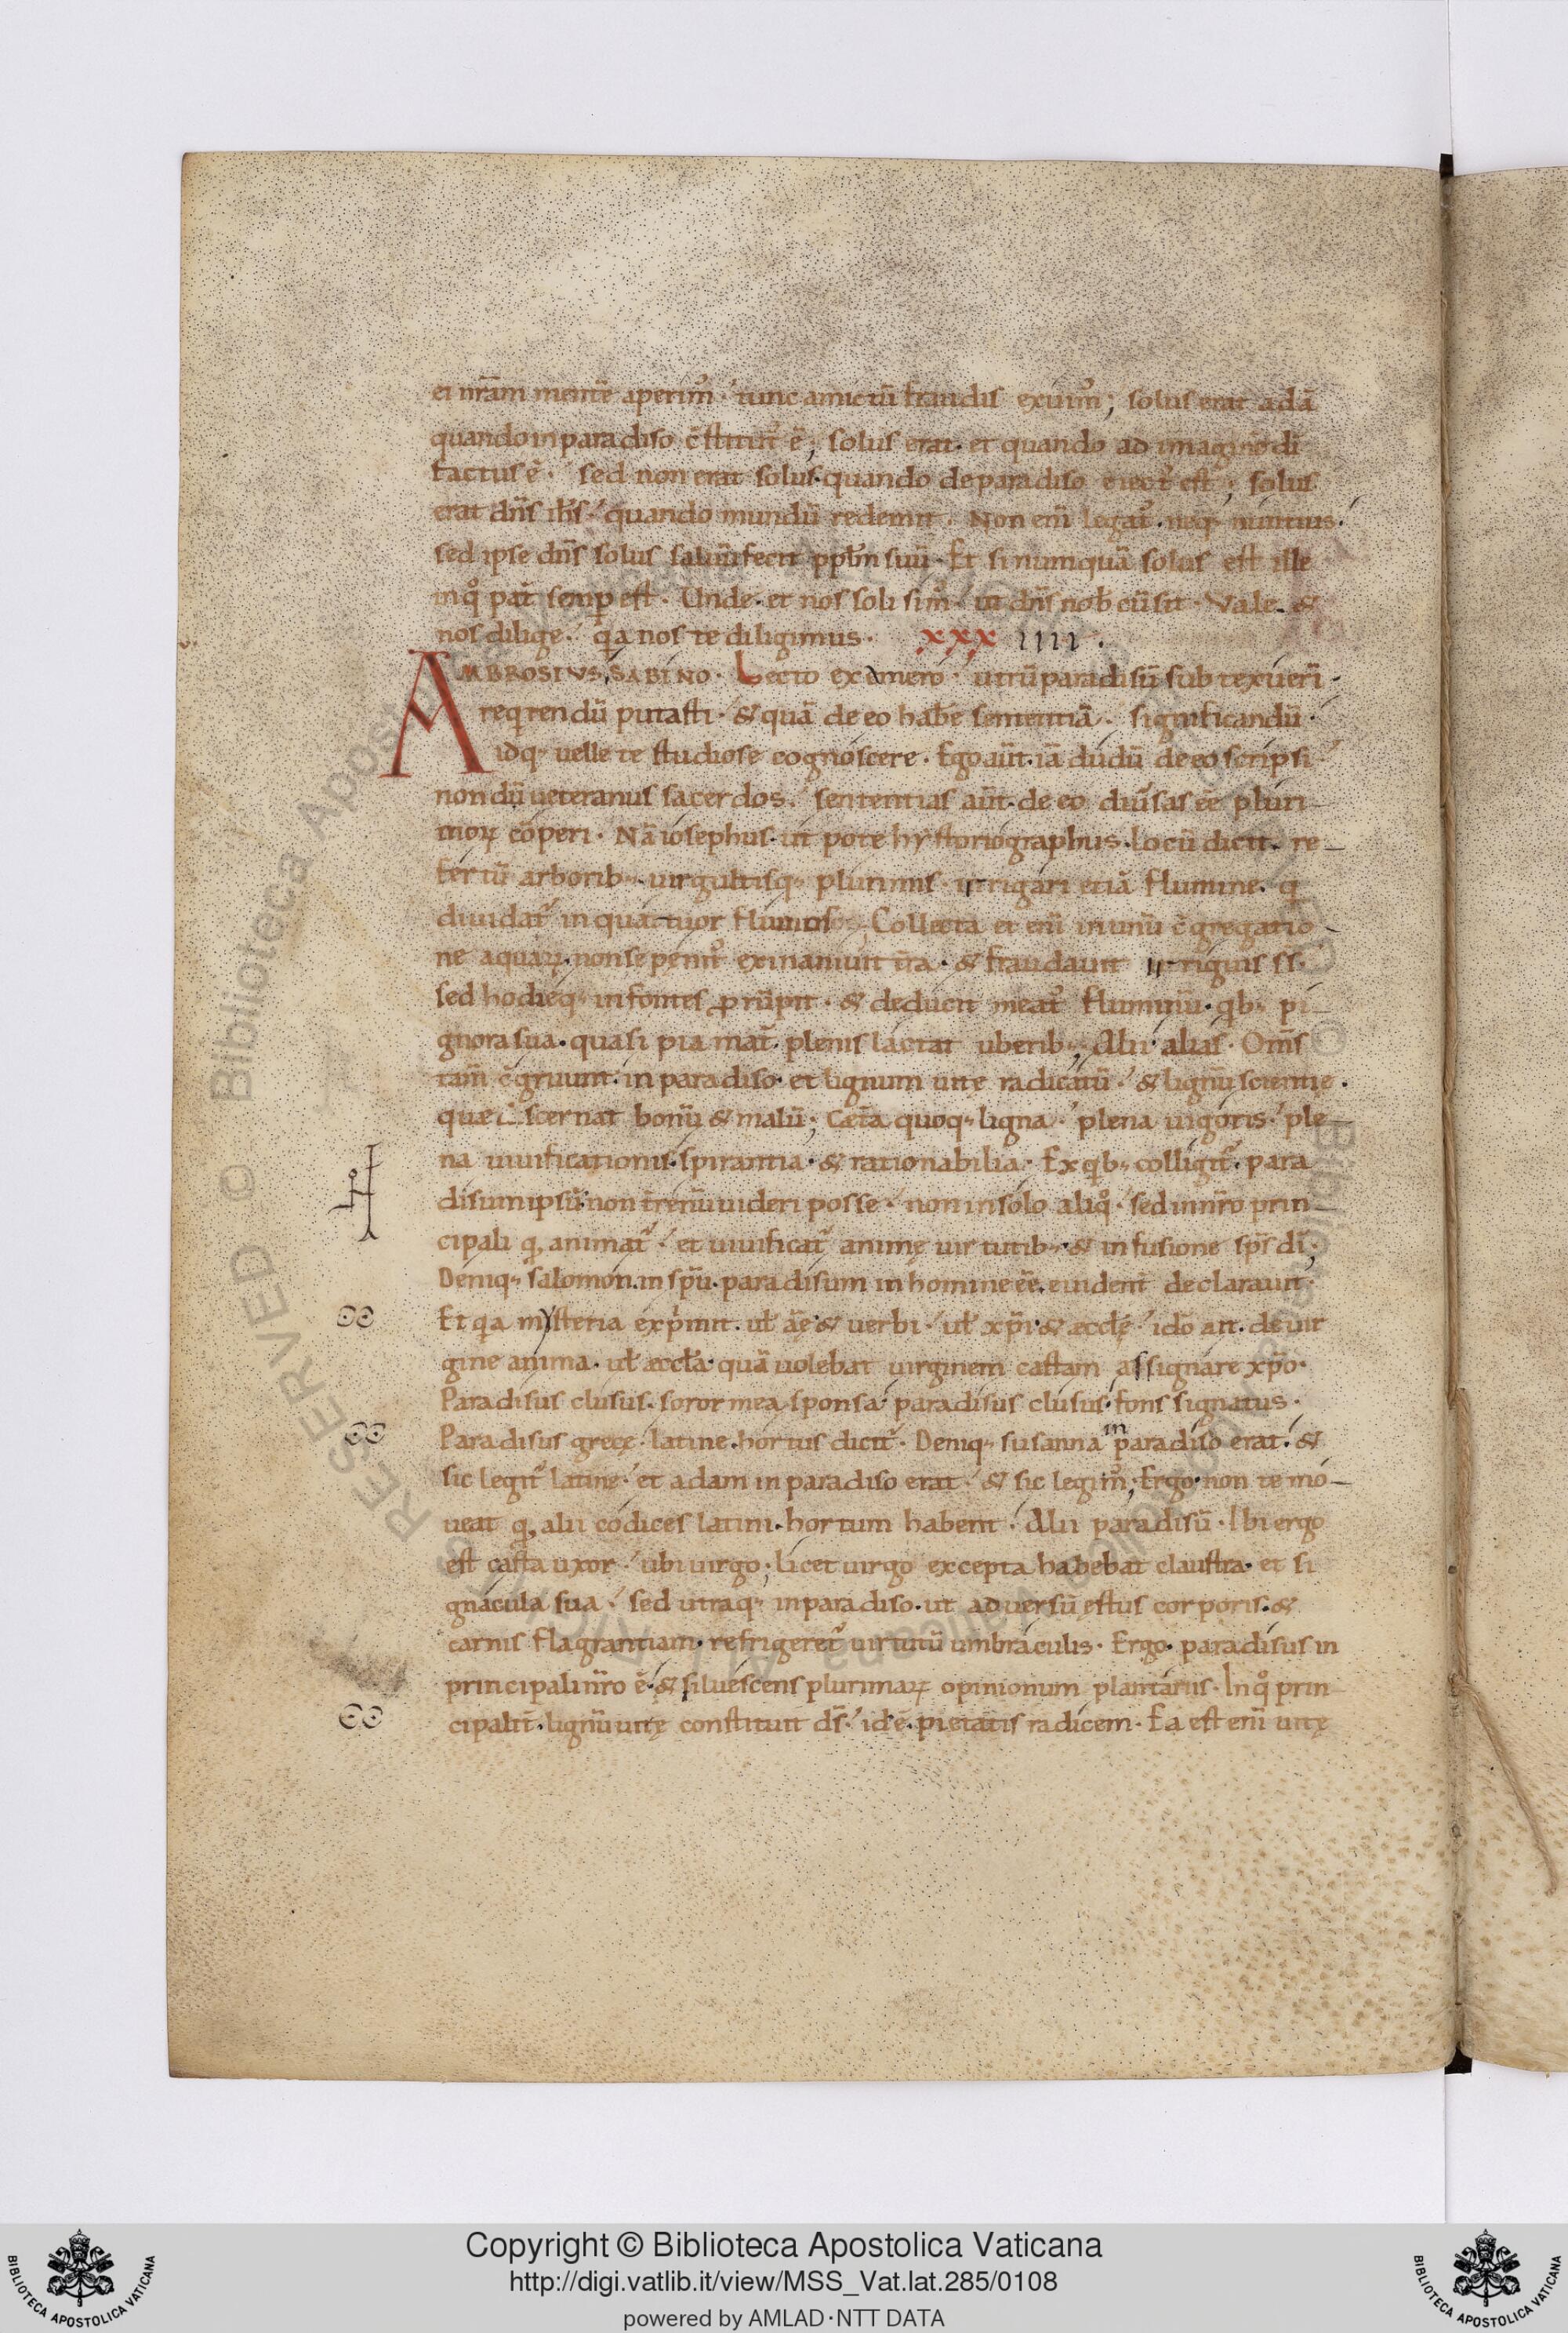 ei nr̄am mentē aperim᷒. tunc amictū fraudis exuim᷒; solus erat adā
quando in paradiso c̄stitut᷒ ē; solus erat. et quando ad imaginē dī
factus ē. sed non erat solus. quando de paradiso eiect᷒ est; solus
erat dn̄s ih̄s. quando mundū redemit. Non enī legat᷒. neq; nuntius.
sed ipse dn̄s solus saluū fecit ppłm suū. Et si numquā solus est ille
in qͦ pat̄ semp̄ est. Unde. et nos soli sim᷒. ut dn̄s nob̄ cū sit. Vale. &
nos dilige. qa nos te diligimus. xxx iiii.
AMBROSIVS SABINO. Lecto examero. utrū paradisū subtexuerī.
reqrendū putasti. & quā de eo habē sententiā. significandū.
idq; uelle te studiose cognoscere. Ego aūt. iā dudū de eo scripsi
nondū ueteranus sacerdos. sententias aūt. de eo diūsas ēē pluri
moꝝ cōperi. Nā iosephus. ut pote hystoriographus. Locū dicit. re
fertū arborib; uirgultisq; plurimis. irrigari etiā flumine. q
diuidat᷑ in quattuor fluuios; Collecta et enī in unū c̄gregatio
ne aquaꝝ. non se penit᷒ exinaniuit t̄ra. & fraudauit irriguis sīs.
sed hodieq; in fontes ꝓrūpit. & deducit meat᷒ fluminū. qb; pi
gnora sua. quasi pia mat̄. plenis lactat uberib; Alii alias. Om̄s
tam̄ c̄gruunt. in paradiso. et lignum uitę radicatū. & lignū scientię.
quæ discernat bonū & malū; Cæt̄a quoq; ligna. plena uigoris. ple
na uiuificationis. spirantia. & rationabilia. Ex qb; colligit᷑. para
disum ipsū. non t̄renū uideri posse. non in solo aliqͦ. sed in nr̄o prin
cipali q, animat᷑. et uiuificat᷑ animę uirtutib; & infusione sp̄s dī;
Deniq; salomon. in sp̄u. paradisum in homine ēē. euident̄ declarauit.
Et qa mysteria expͥmit. ut̄ aīę & uerbi. ut̄ xp̄i & æccłę. ideo ait. de uir
gine anima. ut̄ æccła. quā uolebat uirginem castam assignare xp̄o.
Paradisus clusus. soror mea sponsa. paradisus clusus. fons signatus.
Paradisus grece. latine. hortus dicit᷑. Deniq; susanna in paradiso erat. &
sic legit᷑ latine. et adam in paradiso erat. & sic legim᷒; Ergo. non te mo
ueat q, alii codices latini. hortum habent. Alii paradisū. Ibi ergo
est casta uxor. ubi uirgo; licet uirgo excepta habebat claustra. et si
gnacula sua. sed utraq; in paradiso. ut aduersū ęstus corporis. &
carnis flagrantiam. refrigeret᷑ uirtutū umbraculis. Ergo. paradisus in
principali nr̄o ē. & siluescens plurimaꝝ opinionum plantariis. In qͦ prin
cipalit̄. lignū uitę constituit dś. id ē. pietatis radicem. Ea est enī uitę
Copyright © Biblioteca Apostolica Vaticana
http://digi.vatlib.it/view/MSS_Vat.lat.285/0108
powered by AMLAD·NTT DATA